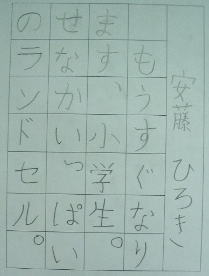 安藤 ひろき
もうすぐなり
ます、小学生。
せなかいっぱい
のランドセル。